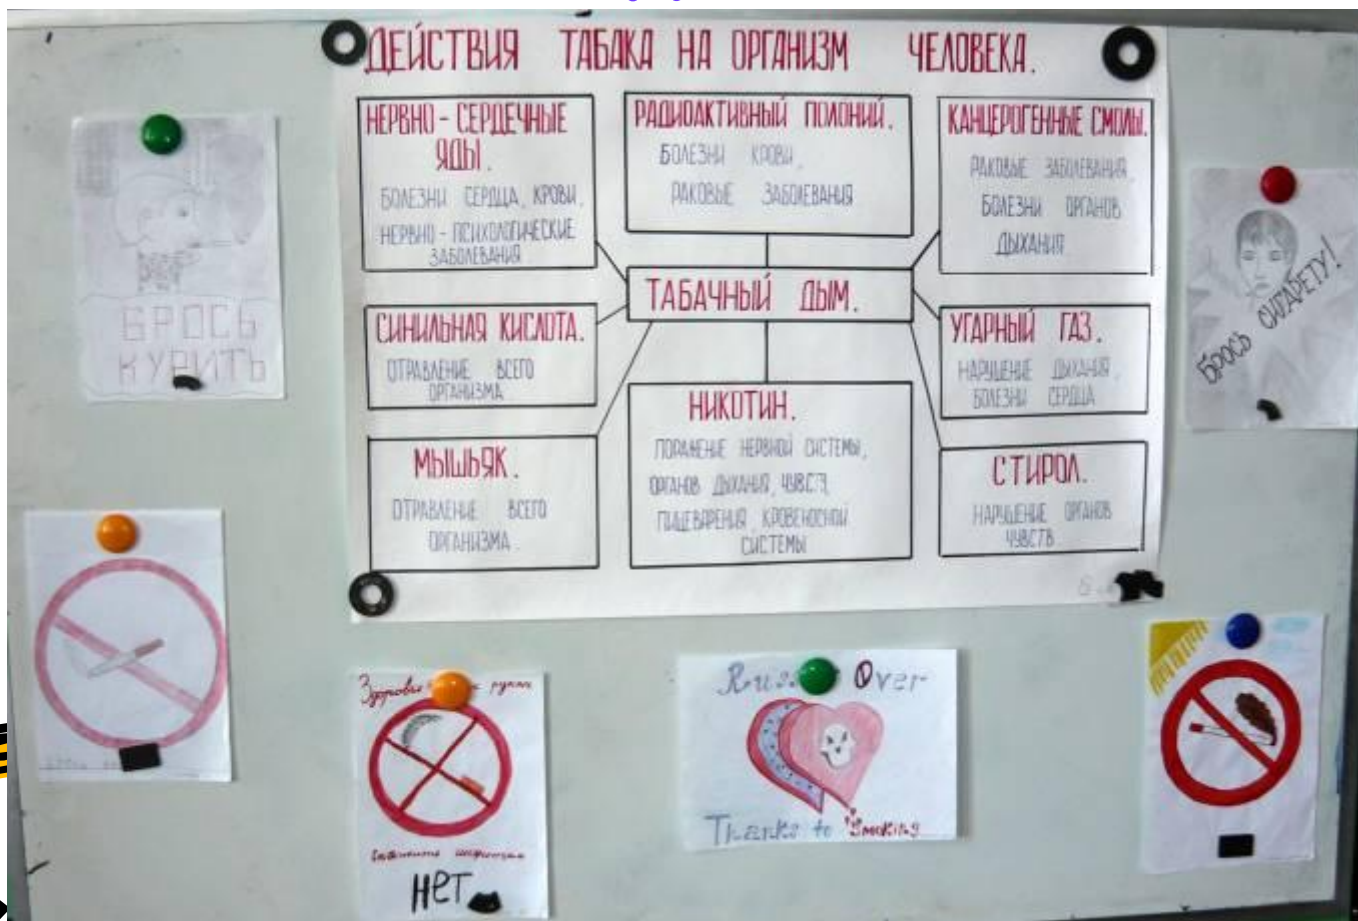 ДЕЙСТВИЯ ТАБАКА НА ОРГАНИЗМ ЧЕЛОВЕКА.
НЕРВНО - СЕРДЕЧНЫЕ
ЯДЫ.
БОЛЕЗНИ СЕРДЦА, КРОВИ,
НЕРВНО - ПСИХОЛОГИЧЕСКИЕ
ЗАБОЛЕВАНИЯ
РАДИОАКТИВНЫЙ ПОЛОНИЙ.
БОЛЕЗНИ КРОВИ,
РАКОВЫЕ ЗАБОЛЕВАНИЯ
КАНЦЕРОГЕННЫЕ СМОЛЫ.
РАКОВЫЕ ЗАБОЛЕВАНИЯ,
БОЛЕЗНИ ОРГАНОВ
ДЫХАНИЯ
ТАБАЧНЫЙ ДЫМ.
СИНИЛЬНАЯ КИСЛОТА.
ОТРАВЛЕНИЕ ВСЕГО
ОРГАНИЗМА
УГАРНЫЙ ГАЗ.
НАРУШЕНИЕ ДЫХАНИЯ,
БОЛЕЗНИ СЕРДЦА
МЫШЬЯК.
ОТРАВЛЕНИЕ ВСЕГО
ОРГАНИЗМА.
НИКОТИН.
ПОРАЖЕНИЕ НЕРВНОЙ СИСТЕМЫ,
ОРГАНОВ ДЫХАНИЯ, ЧУВСТ,
ПИЩЕВАРЕНИЯ, КРОВЕНОСНОЙ
СИСТЕМЫ
СТИРОЛ.
НАРУШЕНИЕ ОРГАНОВ
ЧУВСТВ
БРОСЬ
КУРИТЬ
БРОСЬ СИГАРЕТУ!
Здоровье руках
НЕТ
Over
Thanks to Smoking